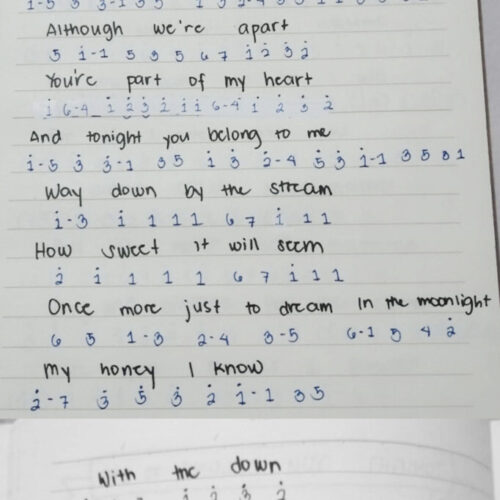 Although we're apart
5 i-1 5 3 5 6 7 i 2̇ 3̇ 2̇
You're part of my heart
i 6-4 i 2̇ 3̇ 2̇ i i 6-4 i 2̇ 3̇ 2̇
And tonight you belong to me
i-5 3̇ 3̇-1 3 5 i 3̇ 2̇-4 5̇ 3̇ i-1 3 5 3 1
Way down by the stream
i-3 i 1 1 1 6 7 i 1 1
How sweet it will seem
2̇ i 1 1 1 6 7 i 1 1
Once more just to dream in the moonlight
6 5 1-3 2-4 3-5 6-1 5 4 2̇
My honey I know
2̇-7 3̇ 5̇ 3̇ 2̇ i-1 3 5
With the down